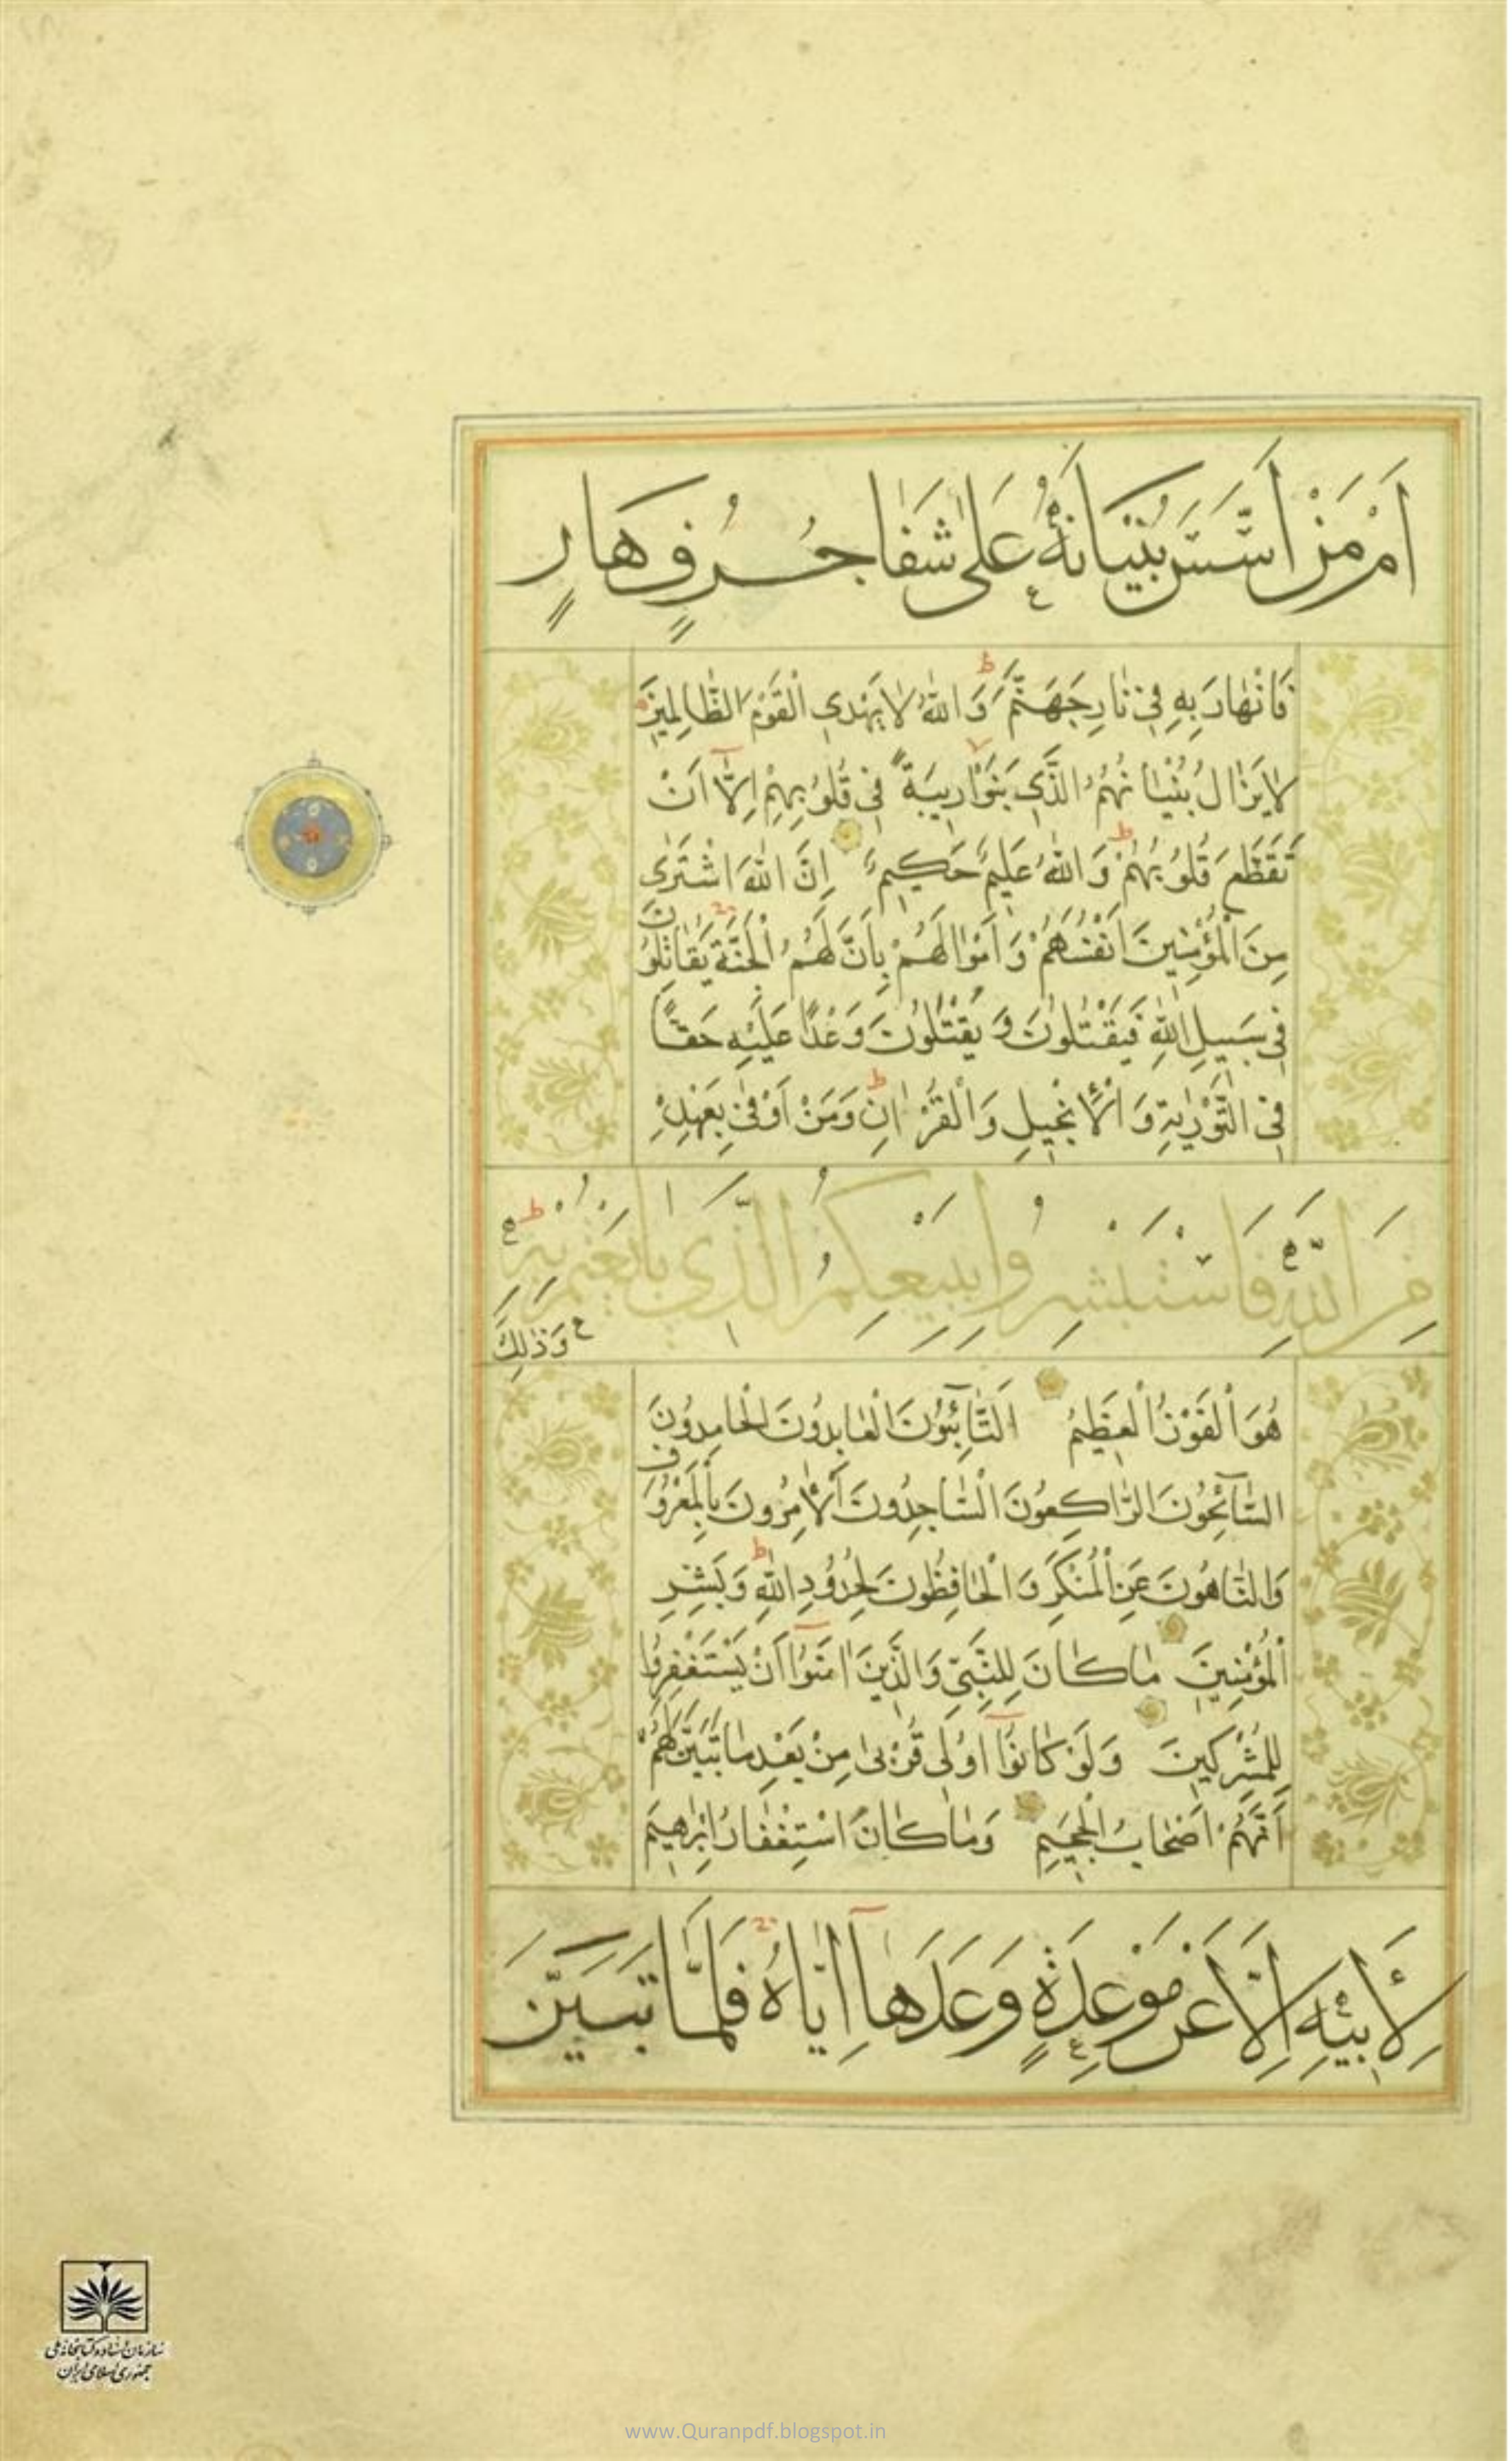 اَمْ مَنْ اَسَّسَ بُنْيَانَهُ عَلٰى شَفَا جُرُفٍ هَارٍ
فَانْهَارَ بِهِ فِي نَارِ جَهَنَّمَ وَاللّٰهُ لَا يَهْدِي الْقَوْمَ الظَّالِمِينَ
لَا يَزَالُ بُنْيَانُهُمُ الَّذِي بَنَوْا رِيبَةً فِي قُلُوبِهِمْ اِلَّا اَنْ
تَقَطَّعَ قُلُوبُهُمْ وَاللّٰهُ عَلِيمٌ حَكِيمٌ اِنَّ اللّٰهَ اشْتَرٰى
مِنَ الْمُؤْمِنِينَ اَنْفُسَهُمْ وَاَمْوَالَهُمْ بِاَنَّ لَهُمُ الْجَنَّةَ يُقَاتِلُونَ
فِي سَبِيلِ اللّٰهِ فَيَقْتُلُونَ وَيُقْتَلُونَ وَعْدًا عَلَيْهِ حَقًّا
فِي التَّوْرٰيةِ وَالْاِنْجِيلِ وَالْقُرْاٰنِ وَمَنْ اَوْفٰى بِعَهْدِهِ
مِنَ اللّٰهِ فَاسْتَبْشِرُوا بِبَيْعِكُمُ الَّذِي بَايَعْتُمْ بِهِ
وَذٰلِكَ
هُوَ الْفَوْزُ الْعَظِيمُ اَلتَّائِبُونَ الْعَابِدُونَ الْحَامِدُونَ
السَّائِحُونَ الرَّاكِعُونَ السَّاجِدُونَ الْاٰمِرُونَ بِالْمَعْرُوفِ
وَالنَّاهُونَ عَنِ الْمُنْكَرِ وَالْحَافِظُونَ لِحُدُودِ اللّٰهِ وَبَشِّرِ
الْمُؤْمِنِينَ مَا كَانَ لِلنَّبِيِّ وَالَّذِينَ اٰمَنُوا اَنْ يَسْتَغْفِرُوا
لِلْمُشْرِكِينَ وَلَوْ كَانُوا اُولِي قُرْبٰى مِنْ بَعْدِ مَا تَبَيَّنَ لَهُمْ
اَنَّهُمْ اَصْحَابُ الْجَحِيمِ وَمَا كَانَ اسْتِغْفَارُ اِبْرٰهِيمَ
لِاَبِيهِ اِلَّا عَنْ مَوْعِدَةٍ وَعَدَهَا اِيَّاهُ فَلَمَّا تَبَيَّنَ
سازمان اسناد و کتابخانه ملی
جمهوری اسلامی ایران
www.Quranpdf.blogspot.in